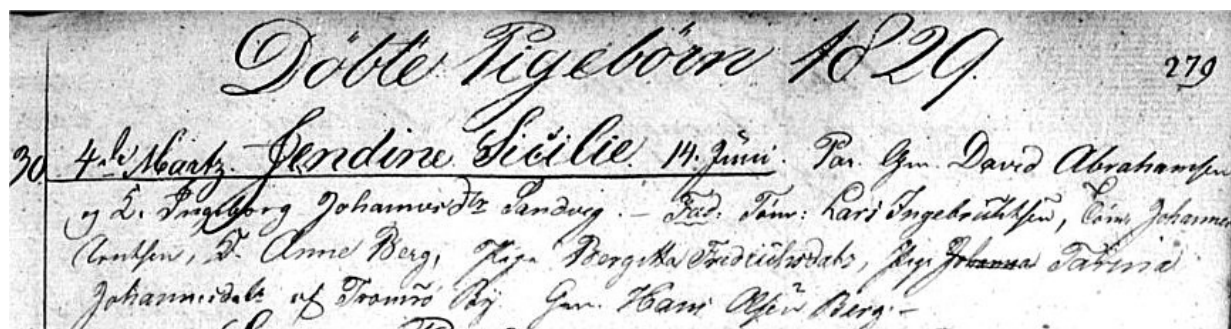 Döbte Pigebörn 1829. 279
30. 4de Martz. Jendine Sicilie. 14. Juni. Par. Gm. David Abrahamsen
og K. Ingeborg Johannesdtr Sandvig. — Fad: Töm: Lars Ingebrichtsen, Töm: Johannes
K. Anne Berg, Pige Bergitta Fredrichsdatr, Pige Johanna Tarina
Johannesdatr af Tromsö By. Gm. Hans Olsen Berg. —